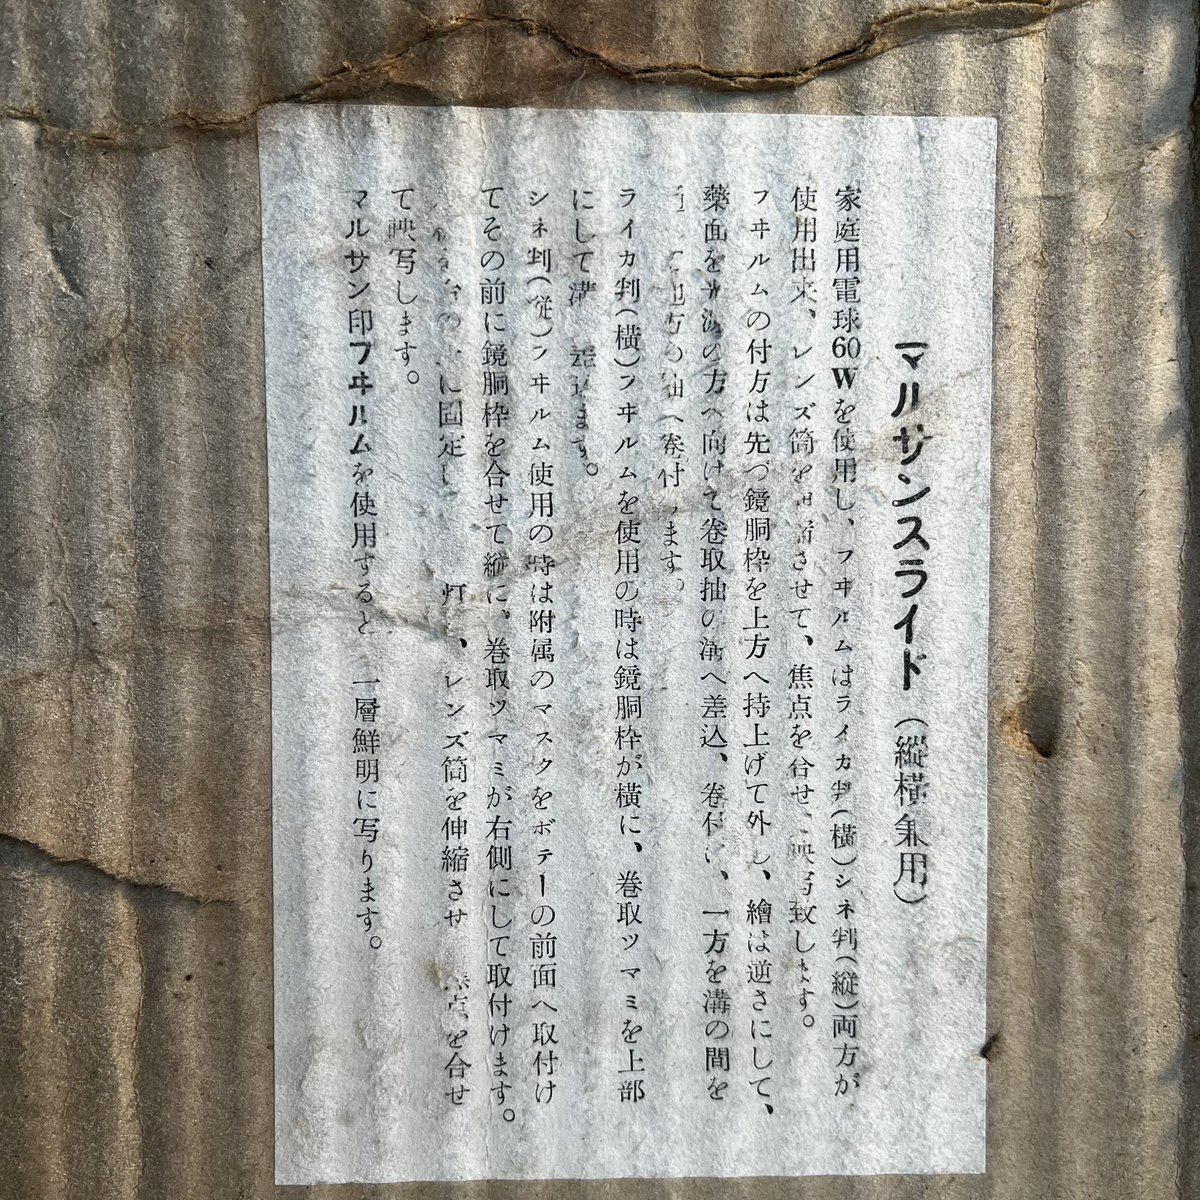 マルサンスライド（縦横兼用）
家庭用電球60Wを使用し、フヰルムはライカ判(横)シネ判(縦)両方が
使用出来、レンズ筒をさせて、焦点を合せ映写致します。
フヰルムの付方は先づ鏡胴枠を上方へ持上げて外し、繪は逆さにして、
藥面を光源の方へ向けて卷取抽の溝へ差込、卷付け、一方を溝の間を
他方の抽へ卷付ます。
ライカ判(横)フヰルムを使用の時は鏡胴枠が横に、巻取ツマミを上部
にして溝差込ます。
シネ判(従)フヰルム使用の時は附属のマスクをボデーの前面へ取付け
てその前に鏡胴枠を合せて縦に、巻取ツマミが右側にして取付けます。
に固定し灯、レンズ筒を伸縮させ焦点を合せ
て映写します。
マルサン印フヰルムを使用すると一層鮮明に写ります。